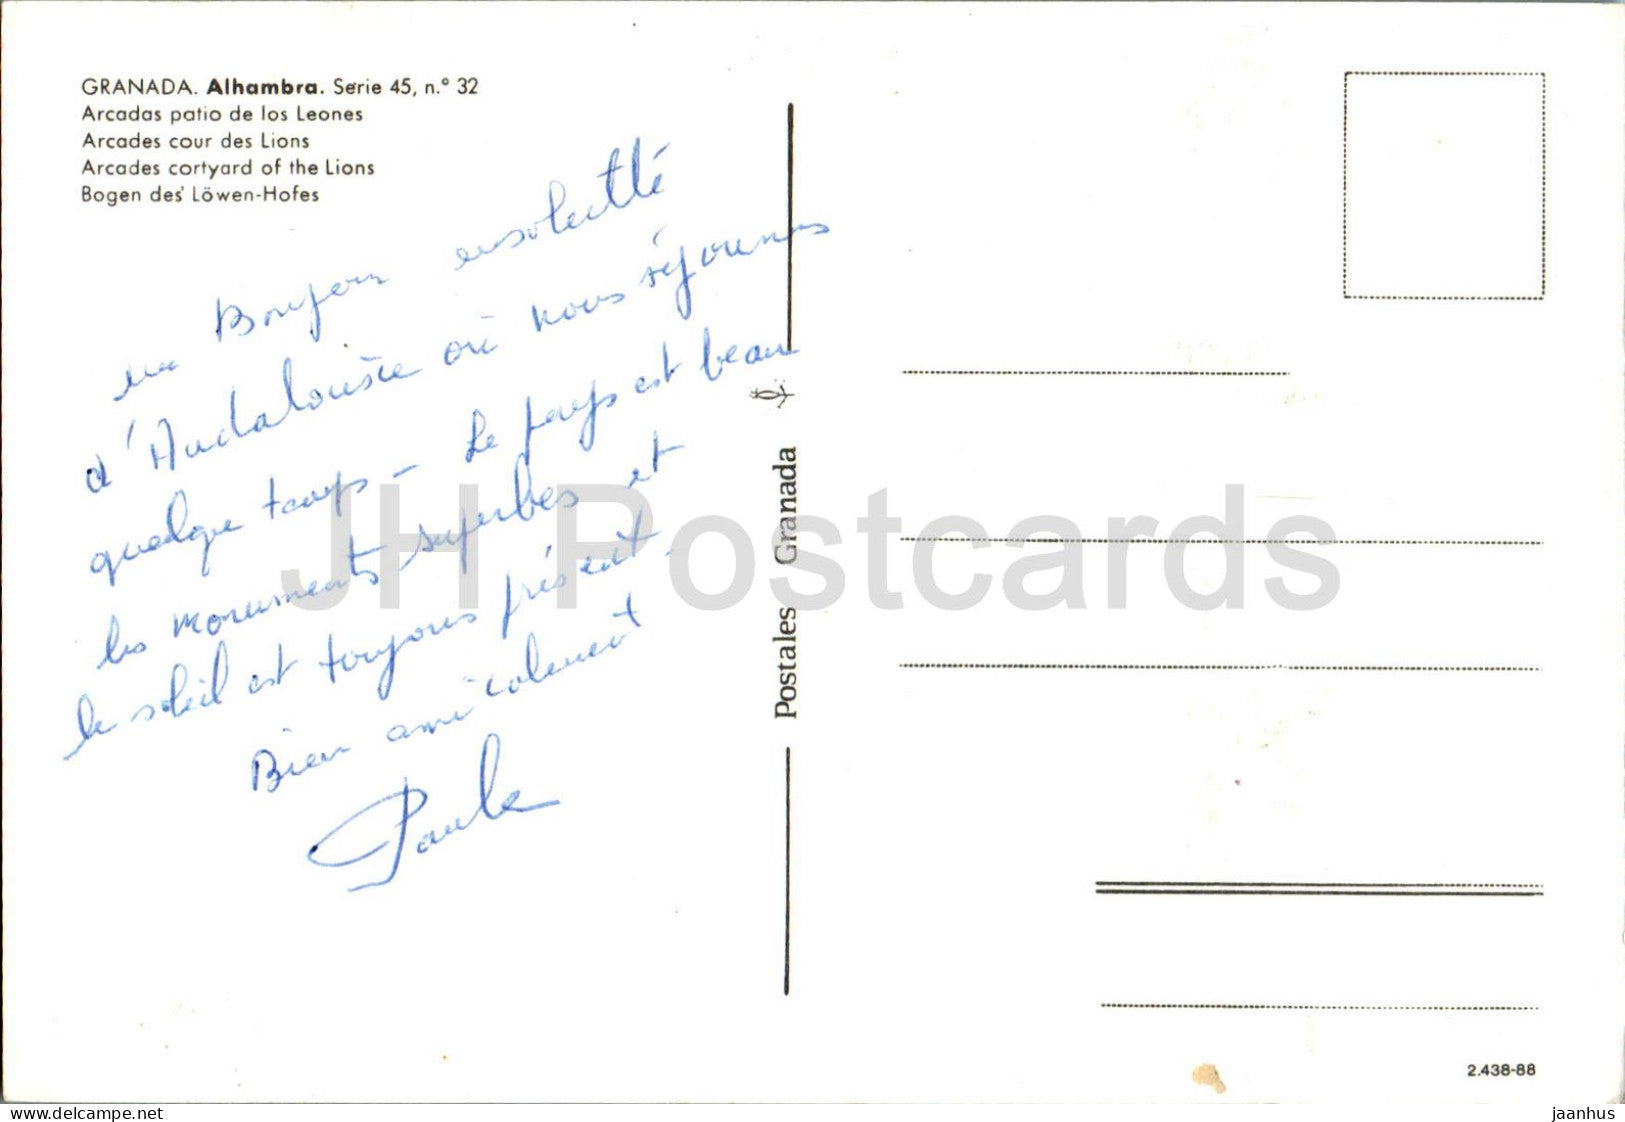 GRANADA. Alhambra. Serie 45, n.º 32
Arcadas patio de los Leones
Arcades cour des Lions
Arcades cortyard of the Lions
Bogen des Löwen-Hofes
un Bonjour ensoleillé
d'Andalousie où nous séjournons
quelque temps - Le pays est beau
les monuments superbes et
le soleil est toujours présent.
Bien amicalement
Paule
Postales Granada
2.438-88
JH Postcards
delcampe.net
jaanhus